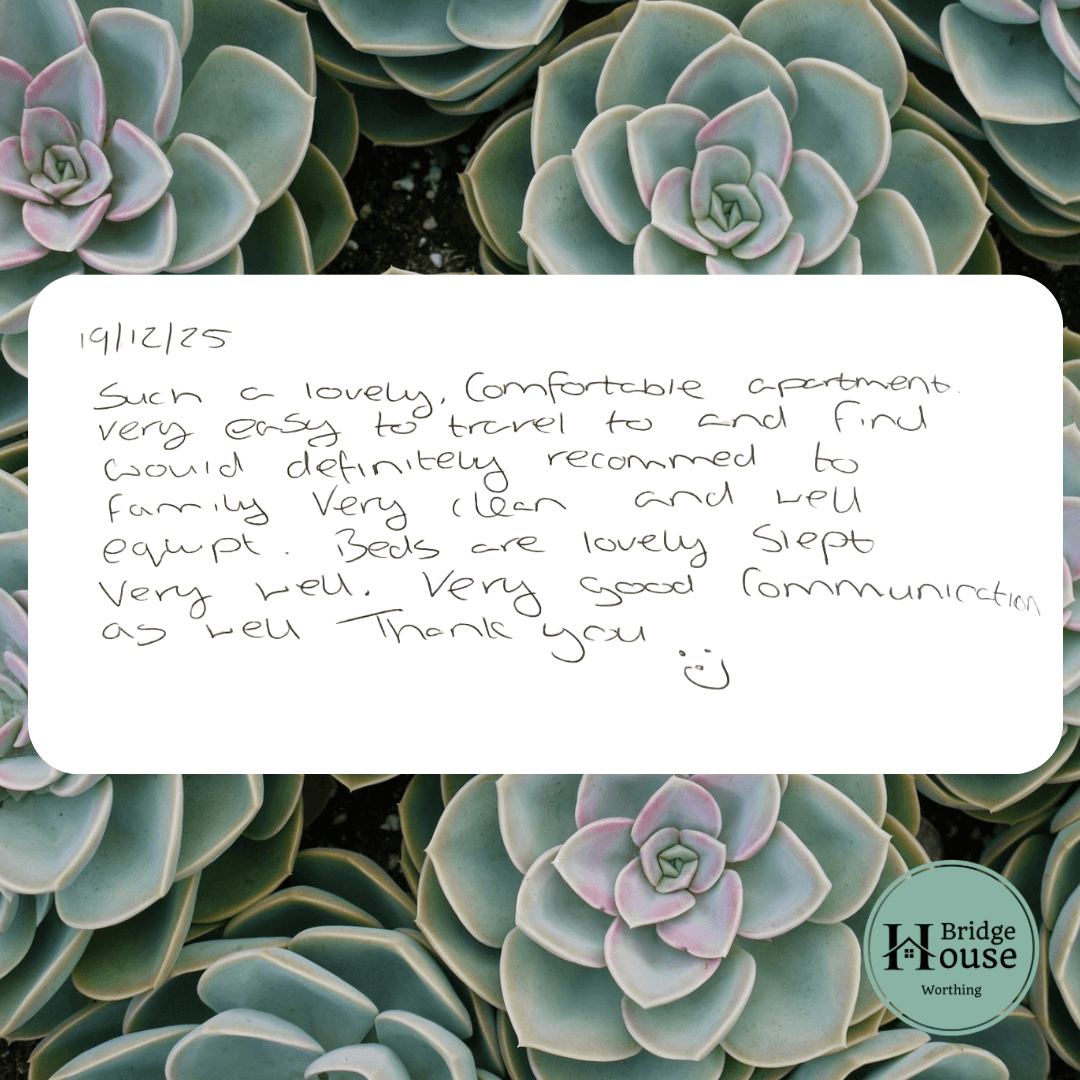 19/12/25
Such a lovely, Comfortable apartment.
very easy to travel to and find
would definitely recommed to
family Very clean and well
equipt. Beds are lovely Slept
Very well. Very good Communication
as well Thank you
Bridge
House
Worthing